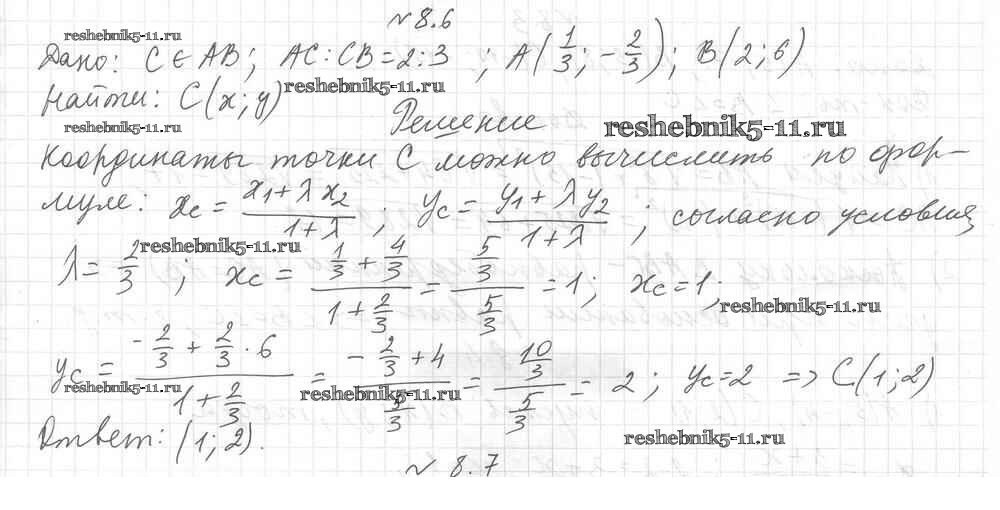 № 8.6
reshebnik5-11.ru
Дано: C ∈ AB; AC : CB = 2 : 3 ; A(1/3; -2/3); B(2; 6)
Найти: C(x; y) reshebnik5-11.ru
reshebnik5-11.ru Решение reshebnik5-11.ru
Координаты точки C можно вычислить по фор-
муле: x_C = (x_1 + λ x_2)/(1 + λ) ; y_C = (y_1 + λ y_2)/(1 + λ) ; согласно условия
reshebnik5-11.ru
λ = 2/3 ; x_C = (1/3 + 4/3)/(1 + 2/3) = (5/3)/(5/3) = 1; x_C = 1;
reshebnik5-11.ru
y_C = (-2/3 + 2/3 · 6)/(1 + 2/3) = (-2/3 + 4)/(5/3) = (10/3)/(5/3) = 2 ; y_C = 2 => C(1; 2)
reshebnik5-11.ru reshebnik5-11.ru
Ответ: (1; 2). reshebnik5-11.ru
№ 8.7